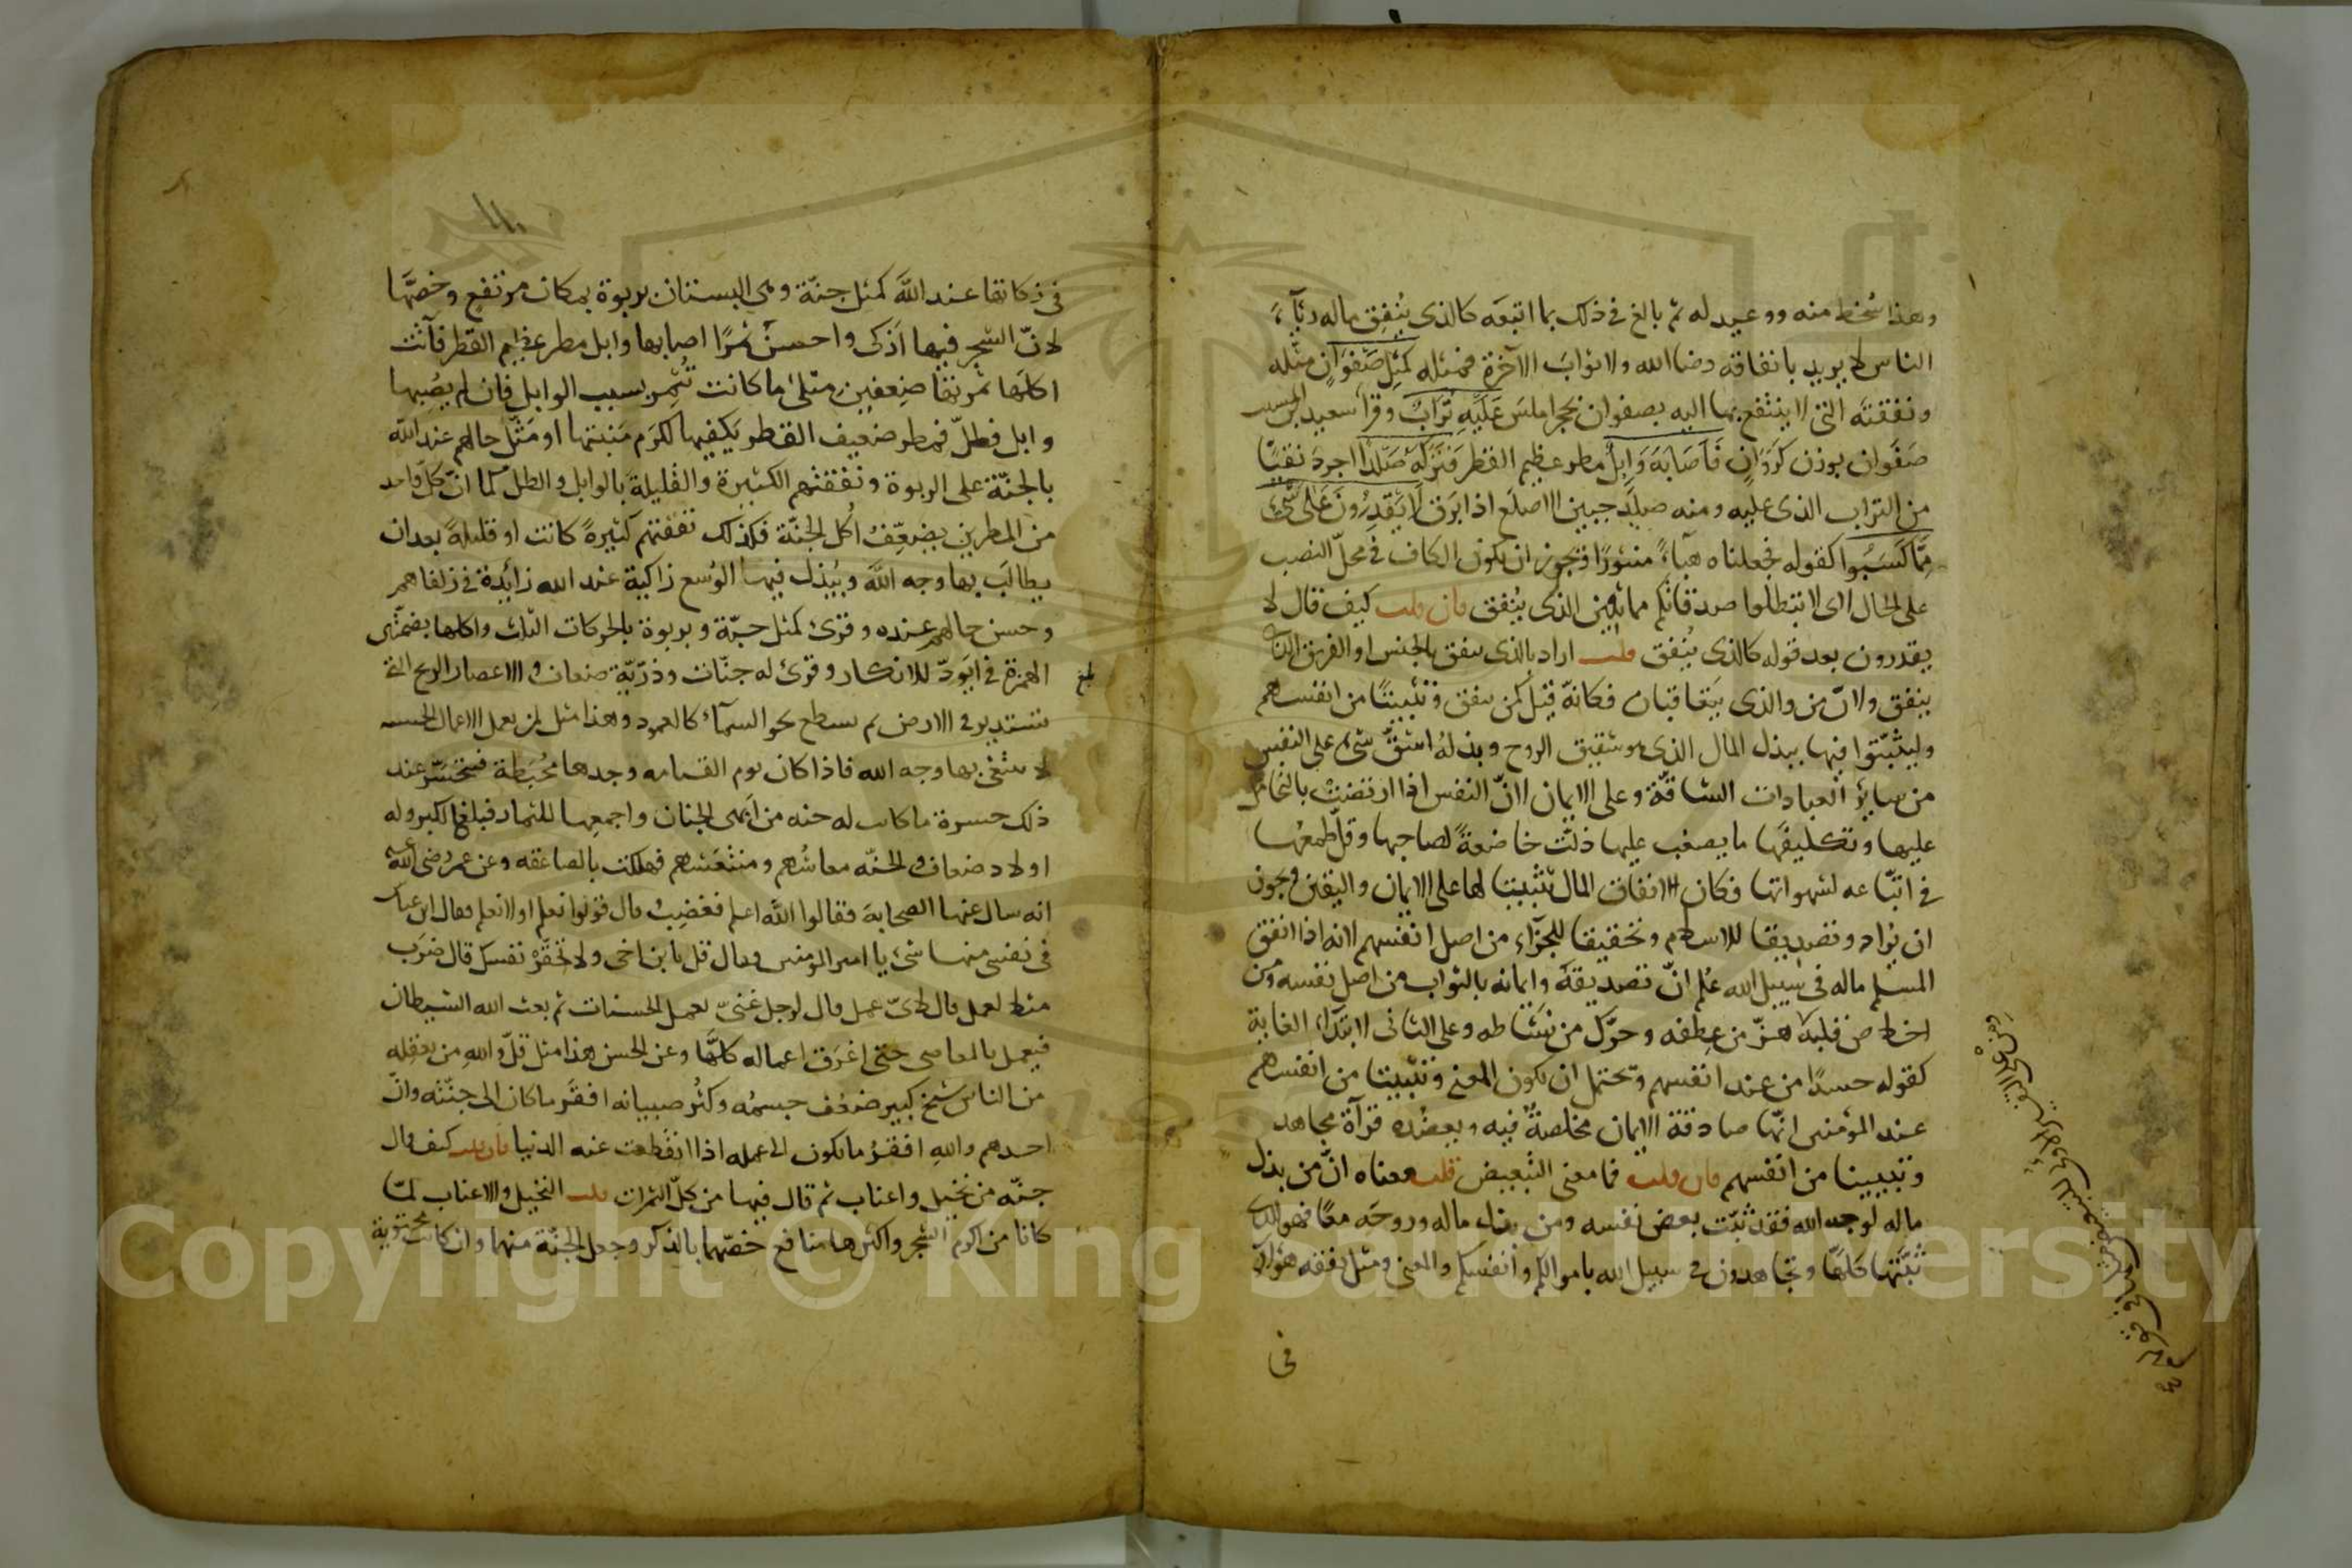 وهذا سُخط منه ووعيد له ثم بالغ في ذلك بما اتبعه كالذي يُنفِق ماله رئآءَ
الناس لا يريد بانفاقه رضا الله ولا ثوابَ الآخرة فمثله كمثلِ صَفوانٍ مثّله
ونفقته التي لا ينتفع بها البه بصفوان بحجر املسَ عَلَيهِ تُرابٌ وقرأ سعيد بن المسيب
صَفَوان بوزن كَرَوَانٍ فَاَصَابَه وَابِلٌ مطر عظيم القطر فَتَرَكَه صَلْدًا اجردَ نقيًّا
من التراب الذي عليه ومنه صلَد جبين الاصلَع اذا ابرَق لا يَقدِرُونَ عَلَى شَيْءٍ
مِّمَّا كَسَبُوا كقوله فجعلناه هبآءً منثورًا ويجوز ان تكون الكاف في محلّ النصب
على الحال اي لا تبطلوا صدقاتكم مماثلين الذي يُنفق فان قلت كيف قال لا
يقدرون بعد قوله كالذي يُنفق قلت اراد بالذي ينفق الجنس او الفريق الذي
ينفق ولانّ من والذي يتعاقبان فكانّه قيل كمن ينفق وتثبيتًا من انفسهم
وليثبّتوا فيها ببذل المال الذي هو شقيق الروح وبذلُه اشقّ شيء على النفس
من سائر العبادات الشاقّة وعلى الايمان لانّ النفس اذا ارتضت بالتحامل
عليها وتكليفها ما يصعب عليها ذلّت خاضعةً لصاحبها وقلّ طمعُها
في اتّباعه لشهواتها فكان انفاق المال تثبيتا لها على الايمان واليقين ويجوز
ان يُراد وتصديقا للاسلام وتحقيقا للجزآء من اصل انفسهم لانه اذا انفق
المسلم ماله في سبيل الله عُلم انّ تصديقَه وايمانه بالثواب من اصل نفسه ومن
اخلاص قلبه هزّ من عِطفه وحرّك من نشاطه وعلى الثاني لابتداء الغاية
كقوله حسدًا من عند انفسهم ويحتمل ان يكون المعنى وتثبيتا من انفسهم
عند المؤمنين انّها صادقة الايمان مخلصةٌ فيه ويعضُده قرآة مجاهد
وتبيينا من انفسهم فان قلت فما معنى التبعيض قلت معناه انّ من بذل
ماله لوجه الله فقد ثبّت بعض نفسه ومن بذل ماله وروحَه معًا فهو الذي
ثبّتها كلَّها وتجاهدون في سبيل الله باموالكم وانفسكم والمعنى ومثل نفقة هؤلآء
في
في زكاتها عند الله كمثل جنة وهي البستان بربوة بمكان مرتفع وخصّها
لانّ الشجر فيها اَزكى واحسنُ ثمرًا اصابها وابل مطر عظيم القطر فآتت
اكلَها ثمرتها ضِعفينِ مثلَيْ ما كانت تُثمِر بسبب الوابل فان لم يصِبها
وابل فطلّ فمطر ضعيف القطر يَكفيها لكرم مَنبتها او مَثّل حالهم عند الله
بالجنّة على الربوة ونفقتهم الكثيرة والقليلةَ بالوابل والطلّ كما انّ كلّ واحد
من المطرين يضعّفُ اكُل الجنّة فكذلك نفقتهم كثيرةً كانت او قليلةً بعد ان
يطالَب بها وجه الله ويُبذل فيها الوُسع زاكية عند الله زائدة في زلفاهم
وحسن حالهم عنده وقرئ كمثل حبّة وبربوة بالحركات الثلث واكلها بضمّتين
الهمزة في ايَودّ للانكار وقرئ له جنّات وذرّيّة ضعاف والاعصار الريح التي
تستدير في الارض ثم يسطع نحو السمآء كالعمود وهذا مثل لمن يعمل الاعمال الحسنه
لا يبتغي بها وجه الله فاذا كان يوم القيامه وجدها مُحبَطة فيتحسّر عند
ذلك حسرة ما كانت له جنه من ابهى الجنان واجمعها للثمار فبلغ الكبر وله
اولاد ضعاف والجنّه معاشُهم ومنتعَشهم فهلكت بالصاعقه وعن عمر رضي الله عنه
انه سال عنها الصحابة فقالوا الله اعلم فغضِب وقال قولوا نعلم او لا نعلم فقال ابن عباس
في نفسي منها شيء يا امير المومنين وقال قل يا بن اخي ولا تحقّر نفسك قال ضرَب
مثلا لعمل قال لايّ عمل قال لرجل غنيّ يعمل الحسنات ثم بعث الله الشيطان
فيعمل بالمعاصي حتى اغرَق اعماله كلَّها وعن الحسن هذا مثل قلّ والله من يعقله
من الناس شيخ كبير ضعُف جسمُه وكثُر صبيانه افقَر ما كان الى جنّته وانّ
احدهم والله افقرُ ما يكون الى عمله اذا انقطعت عنه الدنيا فان قلت كيف قال
جنّه من نخيل واعناب ثم قال فيها من كلّ الثمرات قلت النخيل والاعناب لمّا
كانا من اكرم الشجر واكثرها منافع خصّهما بالذكر وجعل الجنّة منهما وان كانت محتوية